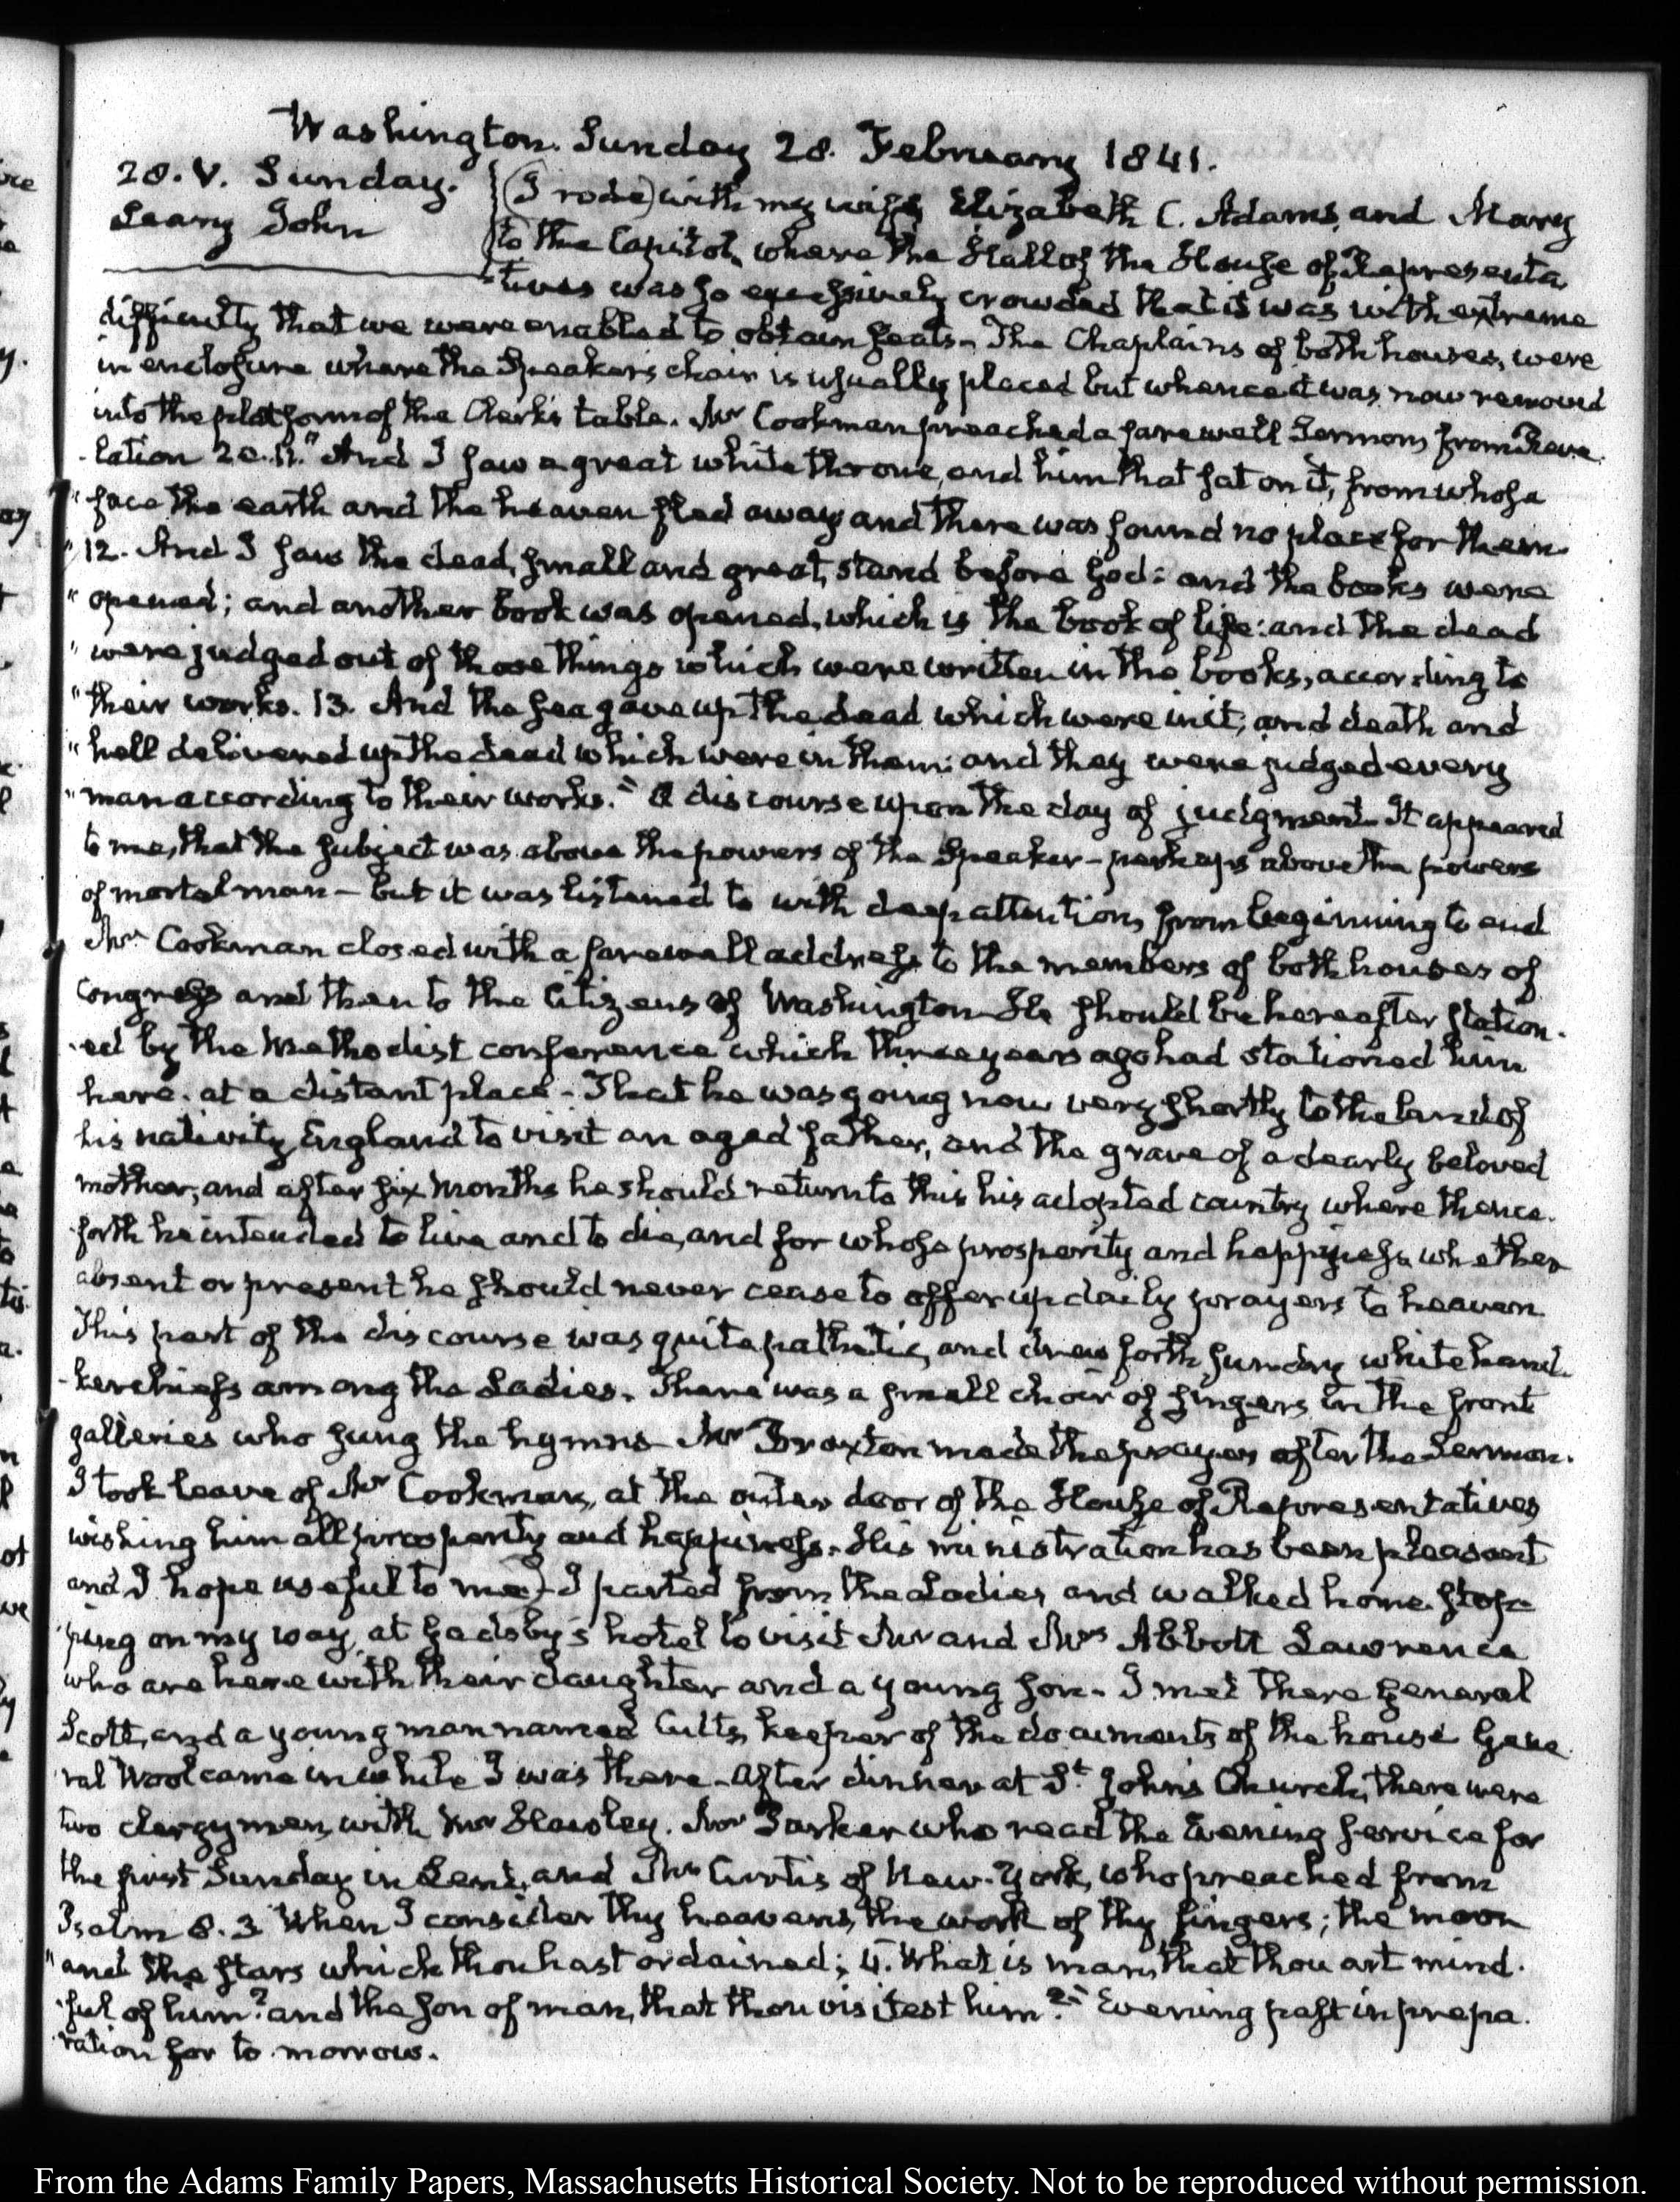 Washington. Sunday 28. February 1841.
28. V. Sunday.
Leary John
(I rode) with my wife, Elizabeth C. Adams, and Mary
to the Capitol, where the Hall of the House of Representa
-tives was so excessively crowded that it was with extreme
difficulty that we were enabled to obtain seats. The Chaplains of both houses, were
in enclosure where the Speaker's chair is usually placed but whence it was now removed
into the platform of the Clerk's table. Mr Cookman preached a farewell Sermon, from Reve
-lation 20.11. "And I saw a great white throne, and him that sat on it, from whose
"face the earth and the heaven fled away and there was found no place for them
"12. And I saw the dead, small and great, stand before God: and the books were
"opened; and another book was opened, which is the book of life: and the dead
"were judged out of those things which were written in the books, according to
"their works. 13. And the sea gave up the dead which were in it; and death and
"hell delivered up the dead which were in them: and they were judged every
"man according to their works." A discourse upon the day of judgment. It appeared
to me, that the subject was above the powers of the Speaker - perhaps above the powers
of mortal man - but it was listened to with deep attention, from beginning to end
Mr Cookman closed with a farewell address to the members of both houses of
Congress and then to the Citizens of Washington. He should be hereafter station.
-ed by the Methodist conference which three years ago had stationed him
here. at a distant place - That he was going now very shortly to the land of
his nativity, England to visit an aged father, and the grave of a dearly beloved
mother, and after six months he should return to this his adopted country where thence.
-forth he intended to live and to die, and for whose prosperity and happiness, whether
absent or present he should never cease to offer up daily prayers to heaven
This part of the discourse was quite pathetic, and drew forth sundry white hand.
-kerchiefs among the Ladies. There was a small choir of singers in the front
galleries who sung the hymns - Mr Braxton made the prayer after the Sermon.
I took leave of Mr Cookman, at the outer door of the House of Representatives
wishing him all prosperity and happiness. His ministration has been pleasant
and I hope useful to me) I parted from the Ladies and walked home. stop
ping on my way, at Gadsby's hotel to visit Mr and Mrs Abbott Lawrence
who are here with their daughter and a young son. I met there General
Scott, and a young man named Cutts, keeper of the documents of the house Gene
ral Wool came in while I was there. After dinner at St. John's Church, there were
two clergymen, with Mr Hawley. Mr Parker who read the Evening service for
the first Sunday in Lent, and Mr Curtis of New-York, who preached from
Psalm 8.3 "When I consider thy heavens, the work of thy fingers; the moon
"and the stars which thou hast ordained; 4. What is man, that thou art mind.
-ful of him? and the son of man, that thou visitest him?" Evening past in prepa.
ration for to morrow.
From the Adams Family Papers, Massachusetts Historical Society. Not to be reproduced without permission.